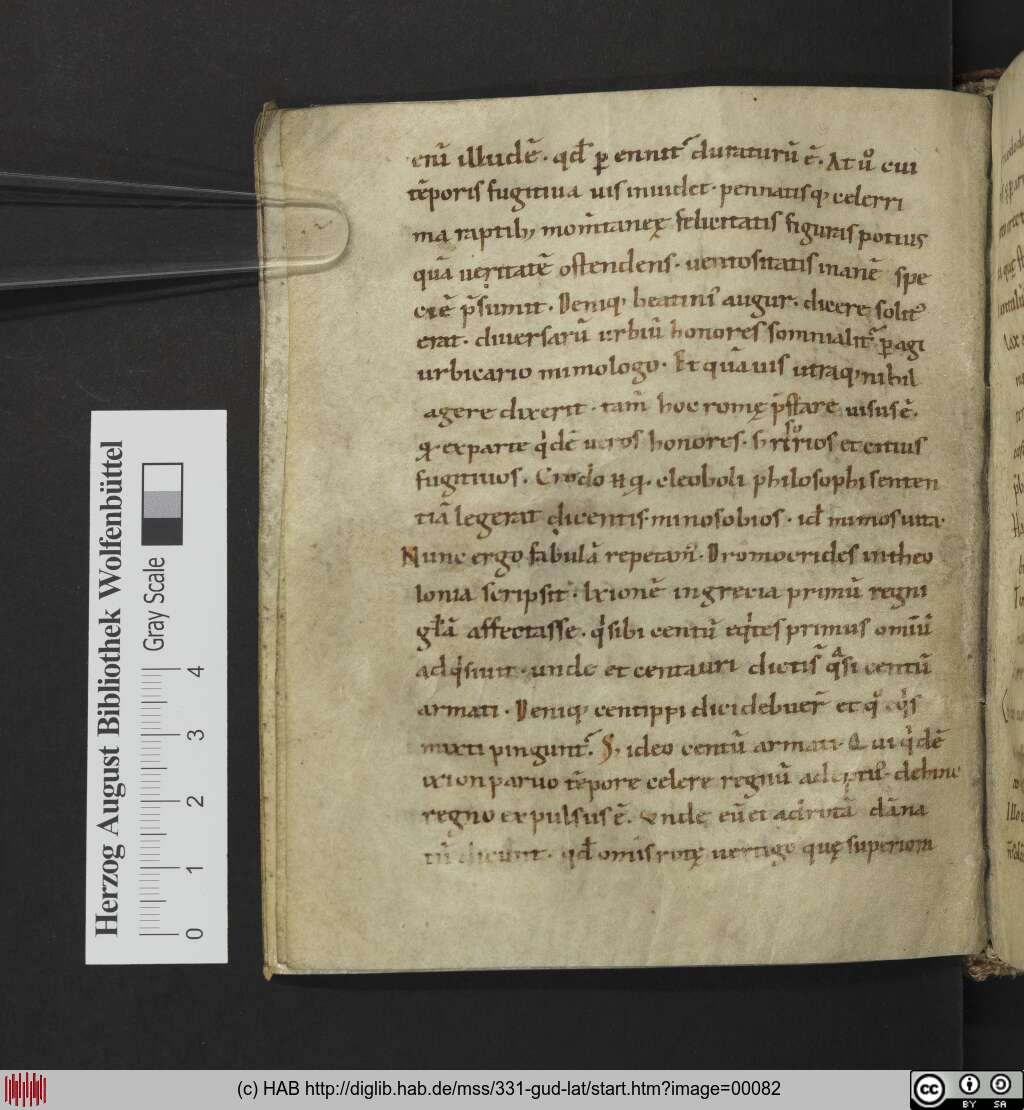 enū illudē. qđ p ennitᷓ duraturū ē. At uͦ cui
tēporis fugitiua uis inuidet. pennatisq; celerri
ma raptib; momtaneę felicitatis figuras potius
quā ueritatē ostendens. uentositatis inanē spe
ciē p̄sumit. Deniq; beatini augur. dicere solitᷓ
erat. diuersarū urbiū honores somnialitᷓ pagi
urbicario mimologo. Et quāuis utraq; nihil
agere dixerit. tam̄ hoc romę p̄stare uisus ē.
ex parte q'dē ueros honores. et citius
fugitiuos. cleoboli philosophi senten
tiā legerat dicentis. minos o bios. id mimos uita.
Nunc ergo fabulā repetam̄. Dromocrides in theo
lonia scripsit. Ixionē in grecia primū regni
glā affectasse. q'sibi centū eq'tes primus omiū
adq'siuit. unde et centauri dictiᷓ qᵃsi centū
armati. Deniq; centippi dici debuer̄ et qͦ eq's
mixti pinguntᷓ. S; ideo centū armati. Q ui q'dē
ixion paruo tēpore celere regnū adeptus. dehinc
regno expulsus ē. Unde eū et ad rotā dāna
tū dicunt. qđ omis rotę uertigo quę superiora
Herzog August Bibliothek Wolfenbüttel
Gray Scale
0 1 2 3 4
(c) HAB http://diglib.hab.de/mss/331-gud-lat/start.htm?image=00082
cc BY SA